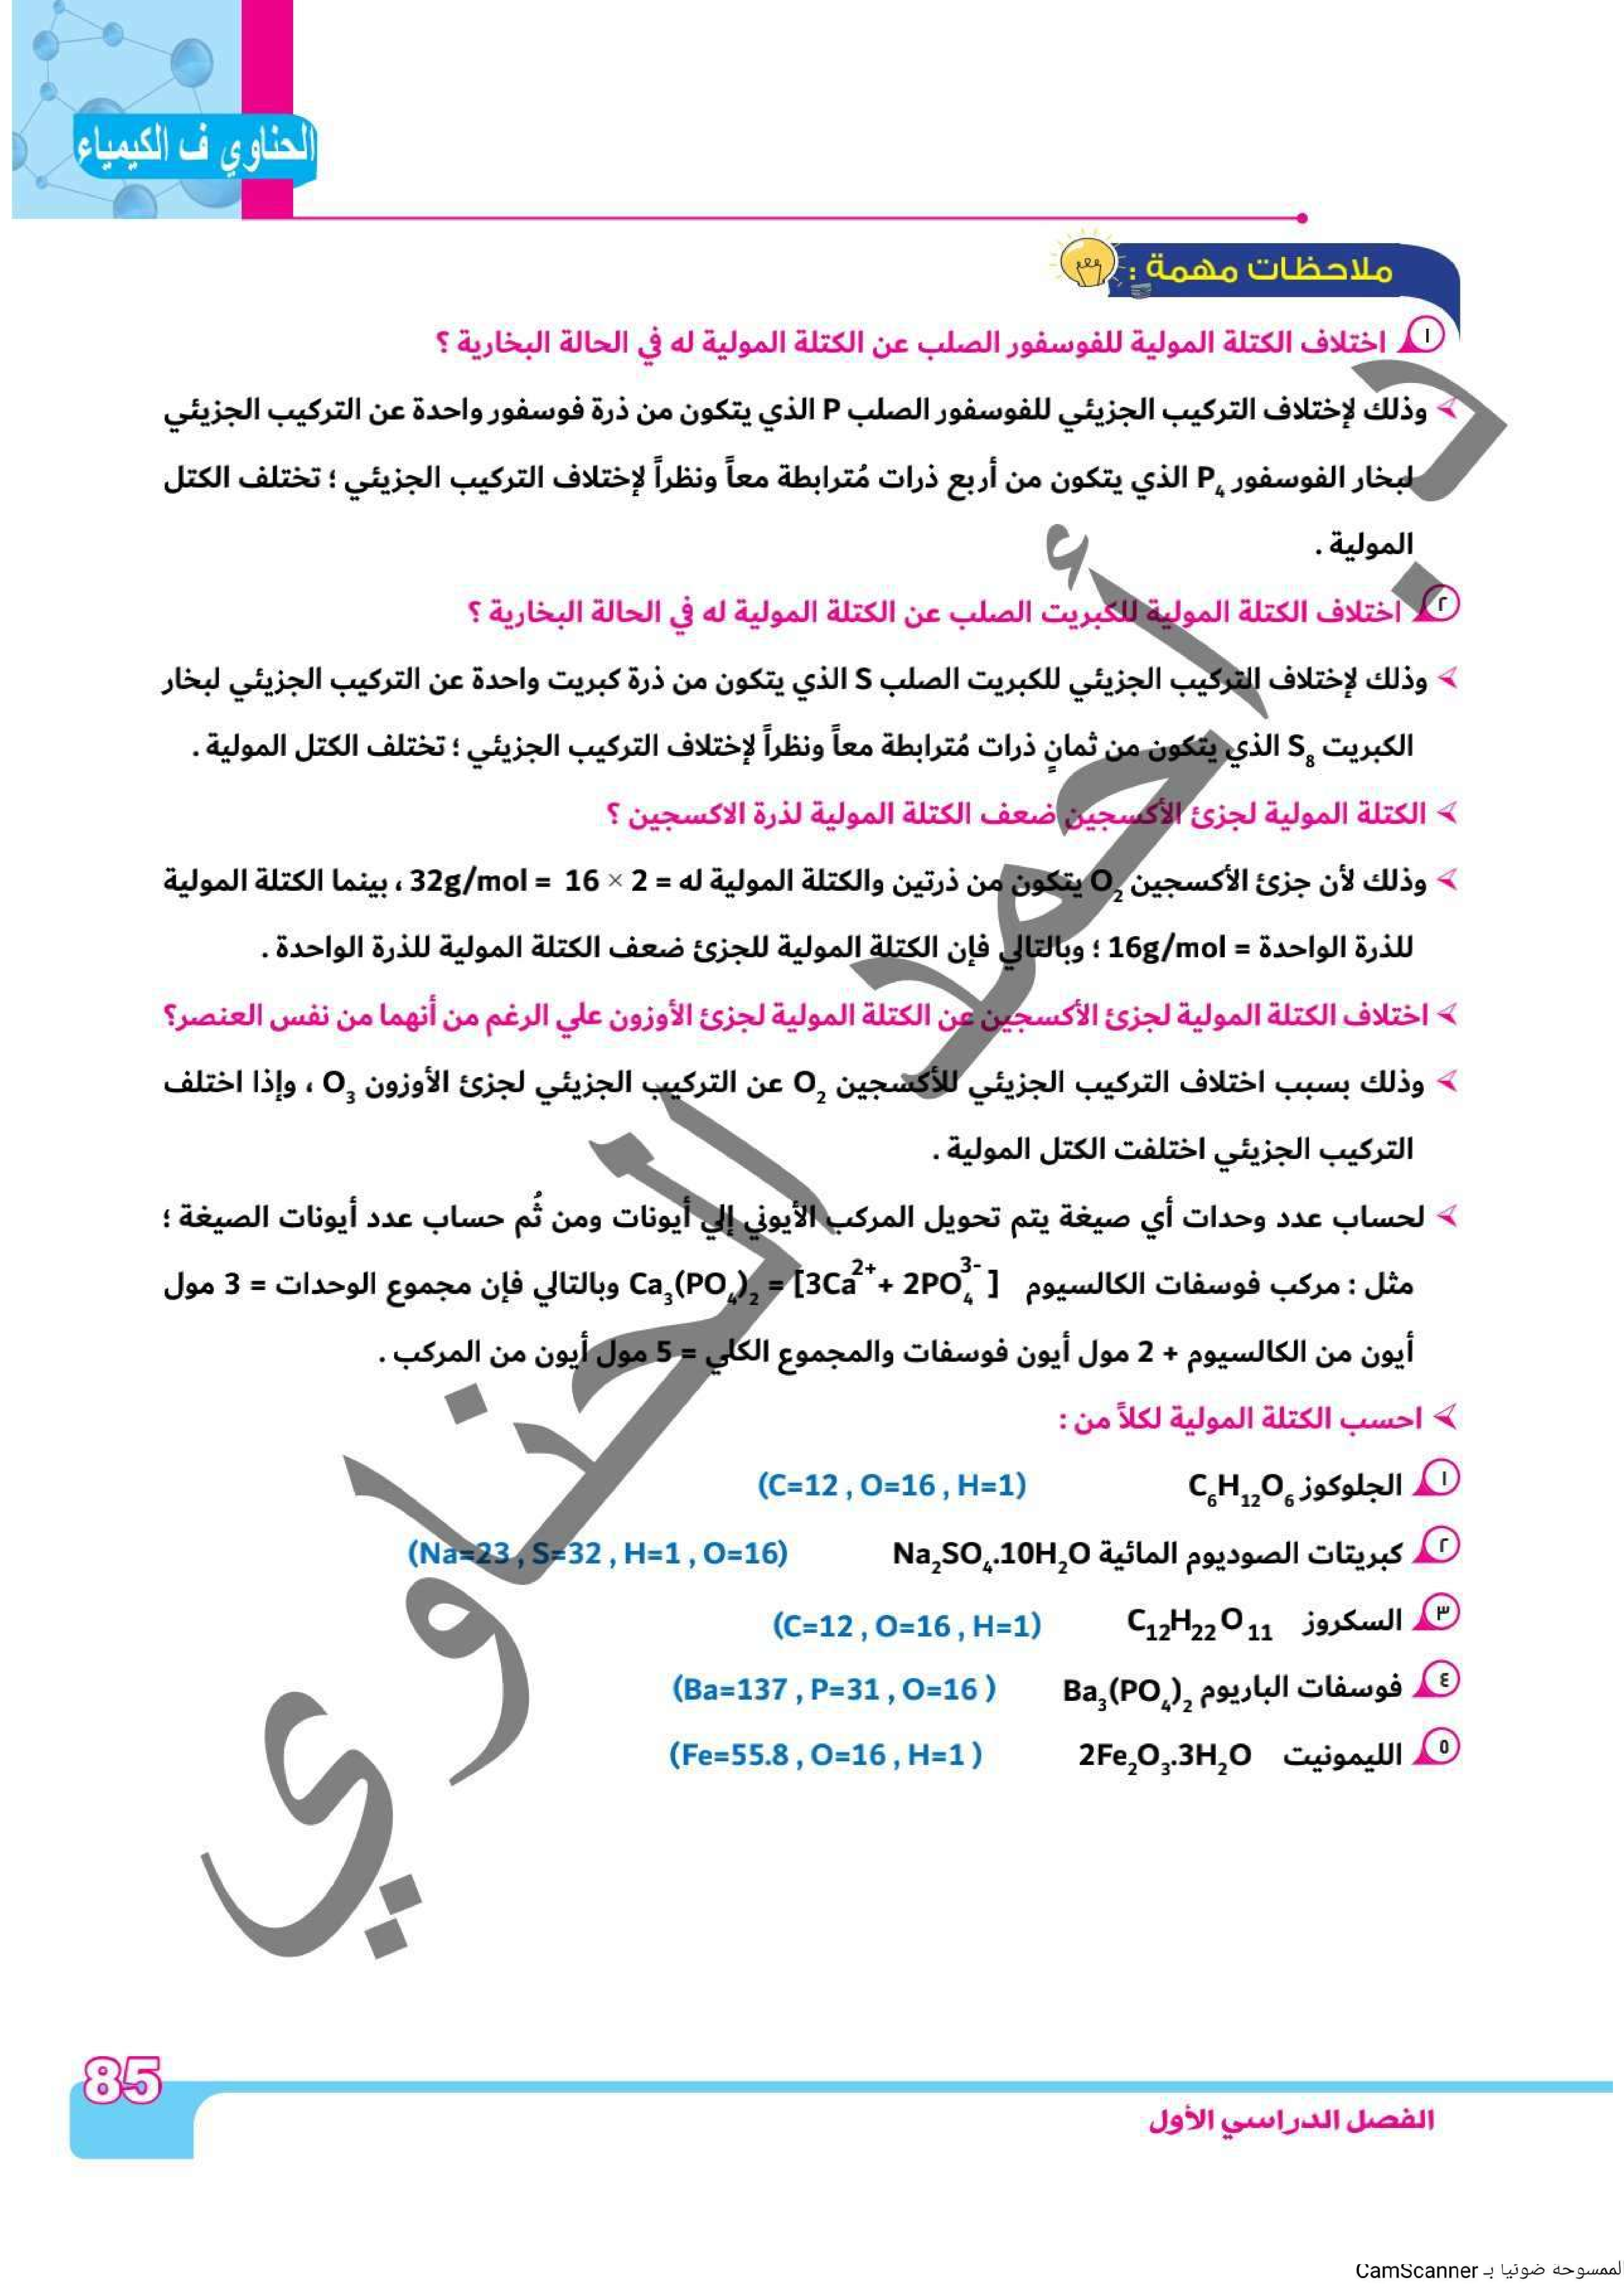 الحناوي ف الكيمياء
ملاحظات مهمة :
١ اختلاف الكتلة المولية للفوسفور الصلب عن الكتلة المولية له في الحالة البخارية ؟
وذلك لإختلاف التركيب الجزيئي للفوسفور الصلب P الذي يتكون من ذرة فوسفور واحدة عن التركيب الجزيئي
لبخار الفوسفور P₄ الذي يتكون من أربع ذرات مُترابطة معاً ونظراً لإختلاف التركيب الجزيئي ؛ تختلف الكتل
المولية .
٢ اختلاف الكتلة المولية للكبريت الصلب عن الكتلة المولية له في الحالة البخارية ؟
وذلك لإختلاف التركيب الجزيئي للكبريت الصلب S الذي يتكون من ذرة كبريت واحدة عن التركيب الجزيئي لبخار
الكبريت S₈ الذي يتكون من ثمانٍ ذرات مُترابطة معاً ونظراً لإختلاف التركيب الجزيئي ؛ تختلف الكتل المولية .
الكتلة المولية لجزئ الأكسجين ضعف الكتلة المولية لذرة الاكسجين ؟
وذلك لأن جزئ الأكسجين O₂ يتكون من ذرتين والكتلة المولية له = 2 × 16 = 32g/mol ، بينما الكتلة المولية
للذرة الواحدة = 16g/mol ؛ وبالتالي فإن الكتلة المولية للجزئ ضعف الكتلة المولية للذرة الواحدة .
اختلاف الكتلة المولية لجزئ الأكسجين عن الكتلة المولية لجزئ الأوزون علي الرغم من أنهما من نفس العنصر؟
وذلك بسبب اختلاف التركيب الجزيئي للأكسجين O₂ عن التركيب الجزيئي لجزئ الأوزون O₃ ، وإذا اختلف
التركيب الجزيئي اختلفت الكتل المولية .
لحساب عدد وحدات أي صيغة يتم تحويل المركب الأيوني إلي أيونات ومن ثُم حساب عدد أيونات الصيغة ؛
مثل : مركب فوسفات الكالسيوم Ca₃(PO₄)₂ = [3Ca²⁺ + 2PO₄³⁻ ] وبالتالي فإن مجموع الوحدات = 3 مول
أيون من الكالسيوم + 2 مول أيون فوسفات والمجموع الكلي = 5 مول أيون من المركب .
احسب الكتلة المولية لكلاً من :
١ الجلوكوز C₆H₁₂O₆ (C=12 , O=16 , H=1)
٢ كبريتات الصوديوم المائية Na₂SO₄.10H₂O (Na=23 , S=32 , H=1 , O=16)
٣ السكروز C₁₂H₂₂O₁₁ (C=12 , O=16 , H=1)
٤ فوسفات الباريوم Ba₃(PO₄)₂ (Ba=137 , P=31 , O=16 )
٥ الليمونيت 2Fe₂O₃.3H₂O (Fe=55.8 , O=16 , H=1 )
أ. أحمد الحناوي
85
الفصل الدراسي الأول
لممسوحة ضوئيا بـ CamScanner